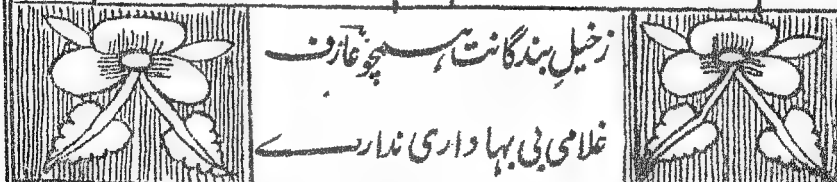 زخیلِ بندگانت ہمچو عارف
غلامی بی بہا داری ندارے